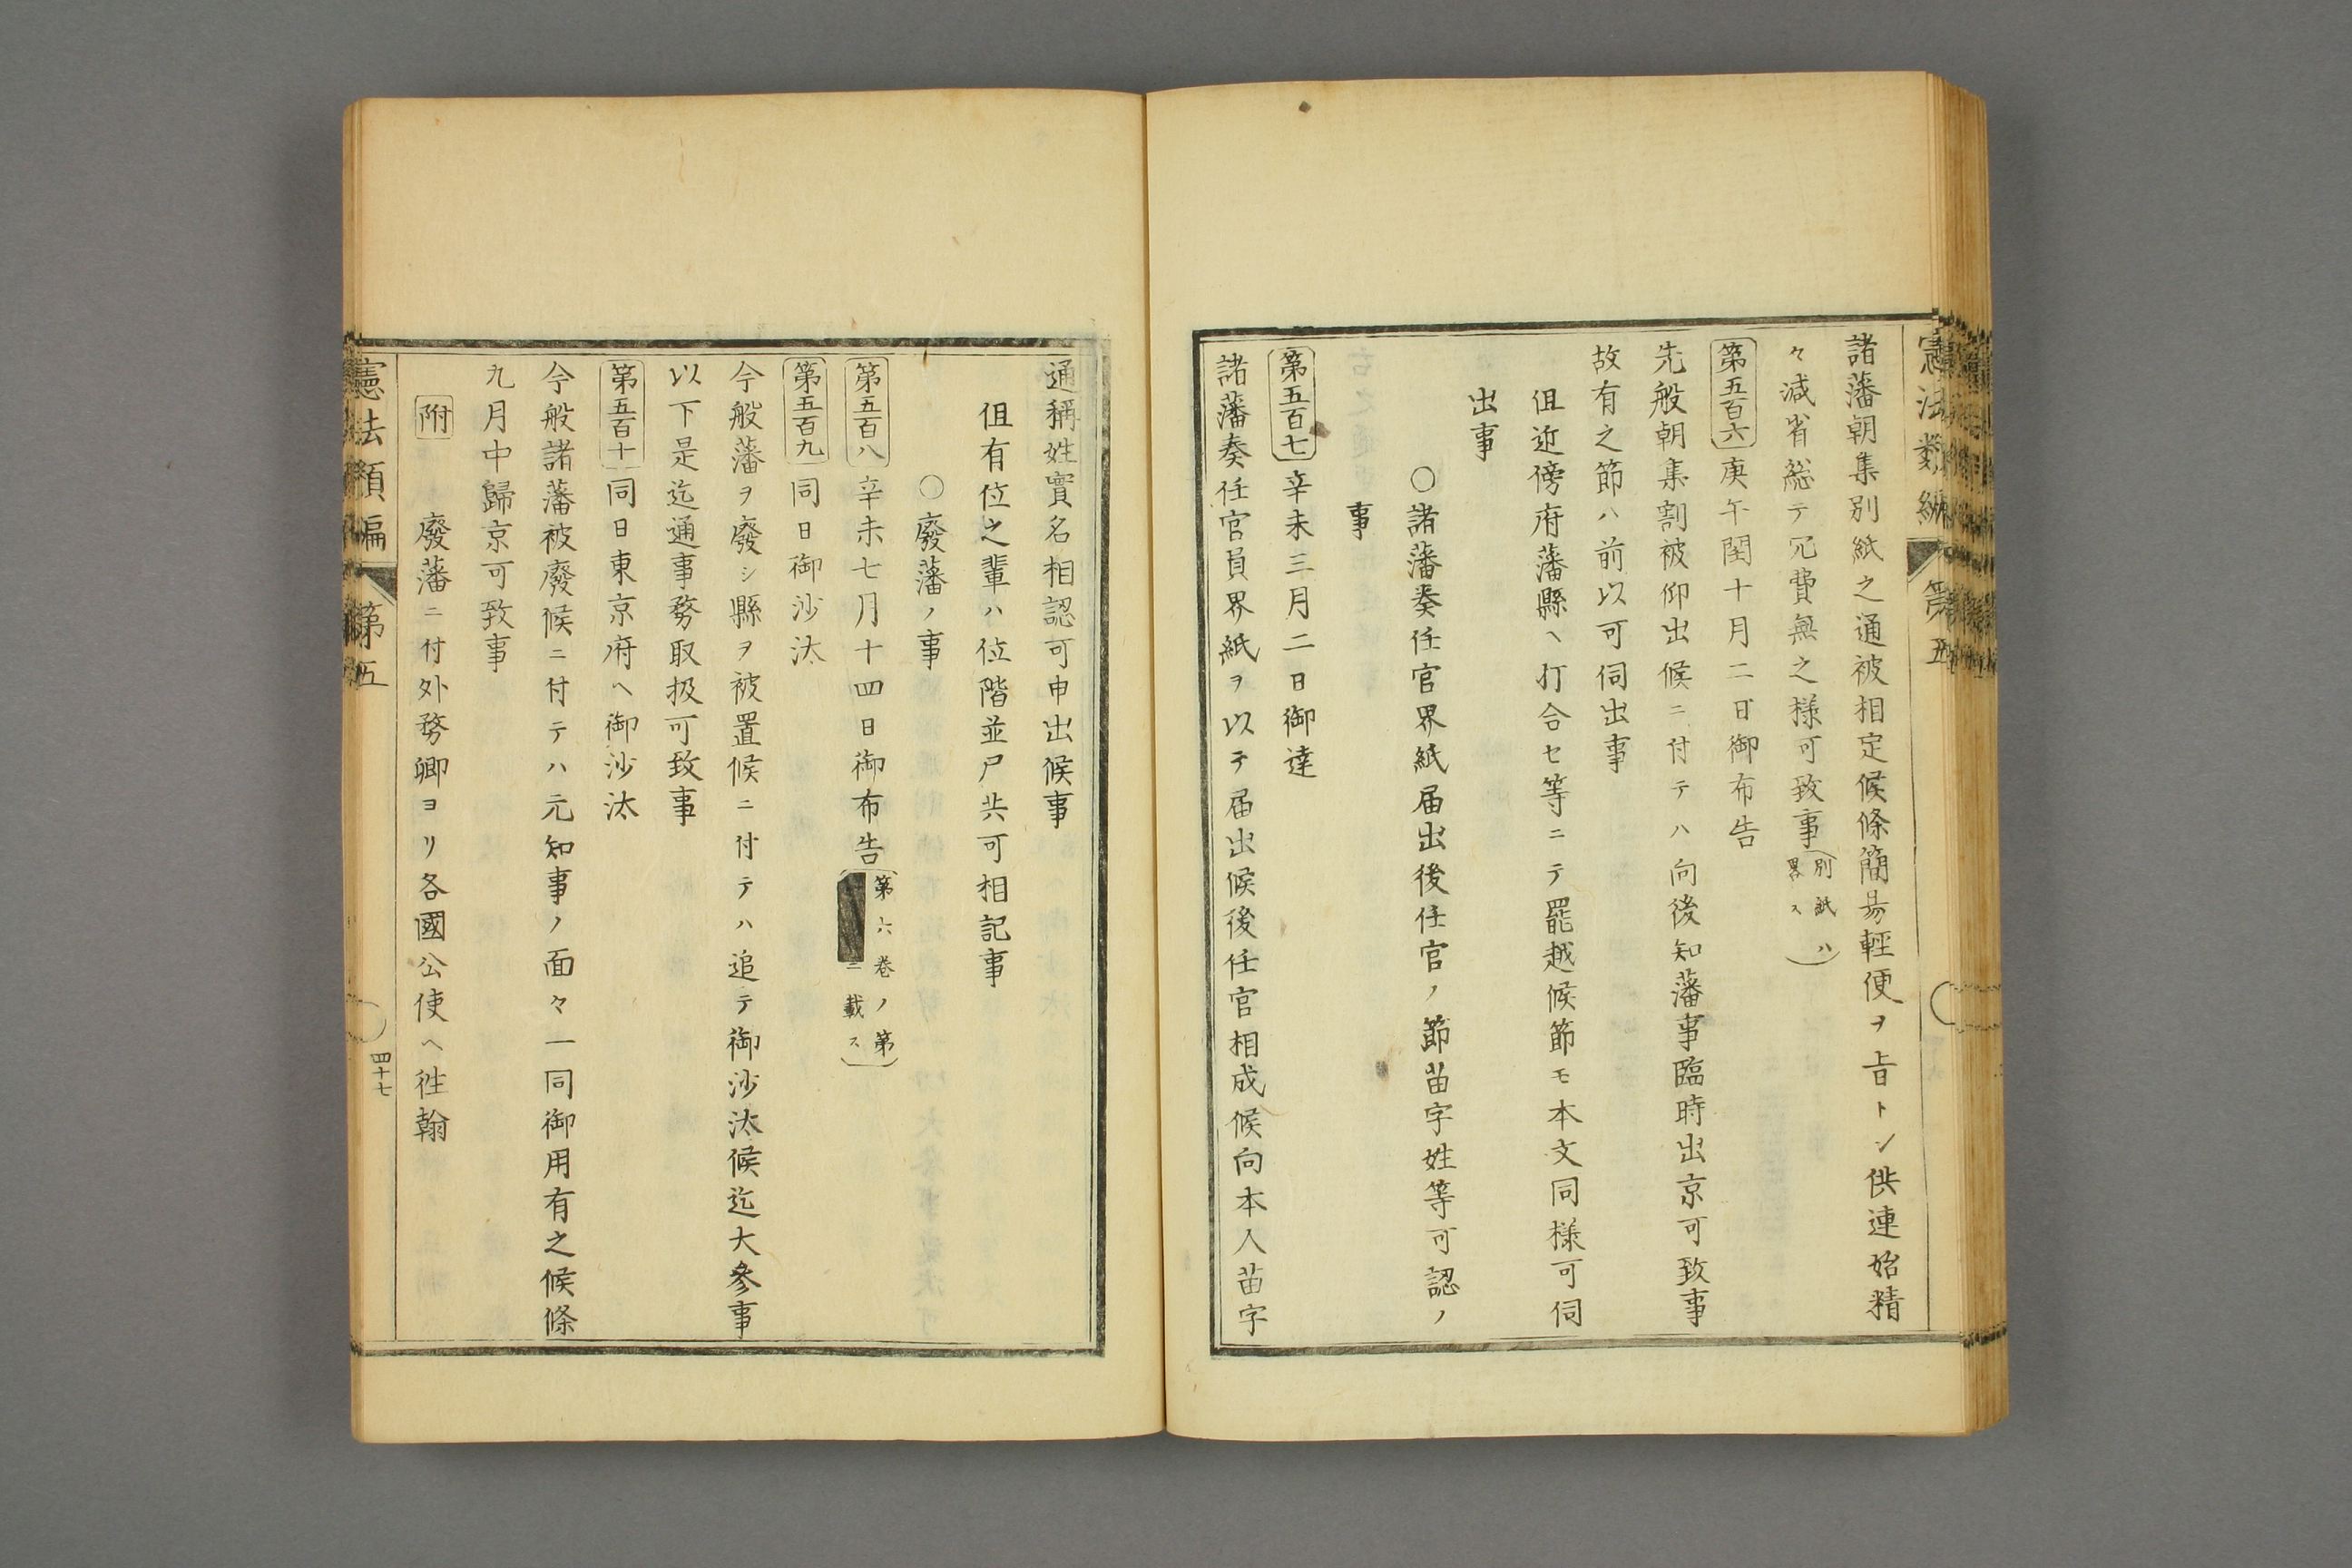 憲法類編 第五
諸藩朝集別紙之通被相定候條簡易輕便ヲ旨トシ供連始精
々減省総テ冗費無之様可致事(別紙ハ畧ス)
第五百六 庚午閏十月二日御布告
先般朝集割被仰出候ニ付テハ向後知藩事臨時出京可致事
故有之節ハ前以可伺出事
但近傍府藩縣ヘ打合セ等ニテ罷越候節モ本文同様可伺
出事
○諸藩奏任官畧紙届出後任官ノ節苗字姓等可認ノ
事
第五百七 辛未三月二日御達
諸藩奏任官員畧紙ヲ以テ届出候後任官相成候向本人苗字
通稱姓實名相認可申出候事
但有位之輩ハ位階並尸共可相記事
○廢藩ノ事
第五百八 辛未七月十四日御布告(第六巻ノ第 ニ載ス)
第五百九 同日御沙汰
今般藩ヲ廢シ縣ヲ被置候ニ付テハ追テ御沙汰候迄大參事
以下是迄通事務取扱可致事
第五百十 同日東京府ヘ御沙汰
今般諸藩被廢候ニ付テハ元知事ノ面々一同御用有之候條
九月中歸京可致事
附 廢藩ニ付外務卿ヨリ各國公使ヘ徃翰
憲法類編 第五 四十七